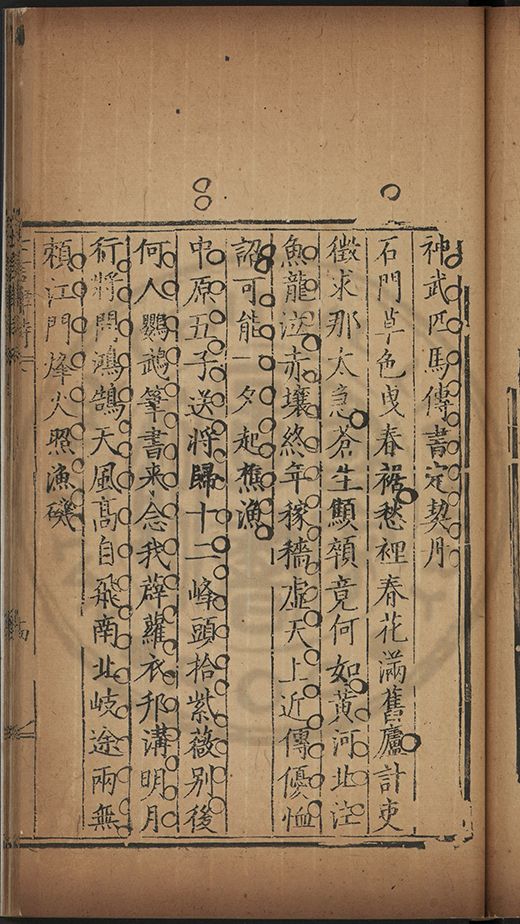 神武匹馬傳書定契丹
石門草色曳春裾愁裡春花滿舊廬計吏
徵求那太急蒼生顦顇竟何如黃河北注
魚龍泣赤壤終年稼穡虛天上近傳優恤
詔可能一夕起樵漁
中原五子送將歸十二峰頭拾紫薇别後
何人鸚鵡筆書来念我薜蘿衣邗溝明月
將鴻鵠天風高自飛南北岐途兩無
頼江門烽火照漁磯